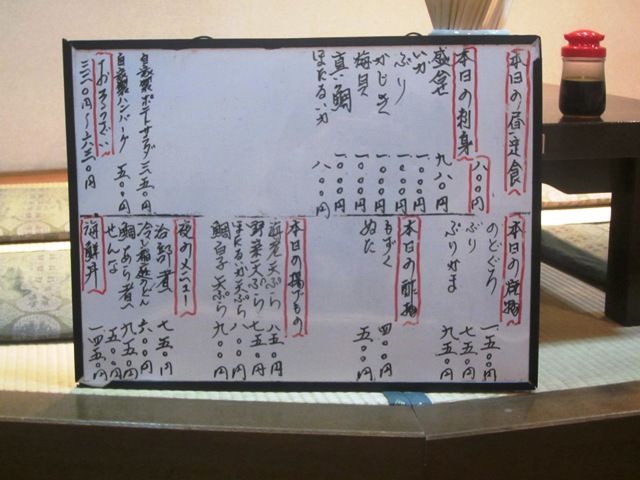 本日の昼定食
八〇〇円
本日の刺身
盛合せ 九八〇円
いか 一〇〇〇円
ぶり 一〇〇〇円
かじき 一〇〇〇円
梅貝 一〇〇〇円
真鯛 一〇〇〇円
ほたるいか 八〇〇円
自家製ポテトサラダ 三五〇円
自家製ハンバーグ 五〇〇円
三三〇円〜六三〇円
本日の焼物
のどぐろ 一五〇〇円
ぶり 七五〇円
ぶりかま 九五〇円
本日の酢物
もずく 四〇〇円
ぬた 五〇〇円
本日の揚げもの
海老天ぷら 八五〇円
野菜天ぷら 七五〇円
ほたるいか天ぷら 八〇〇円
鯛白子天ぷら 九〇〇円
夜のメニュー
治部煮 七五〇円
冷し稲庭うどん 六〇〇円
鯛あら煮 九五〇円
せんな 五〇〇円
海鮮丼 一四五〇円